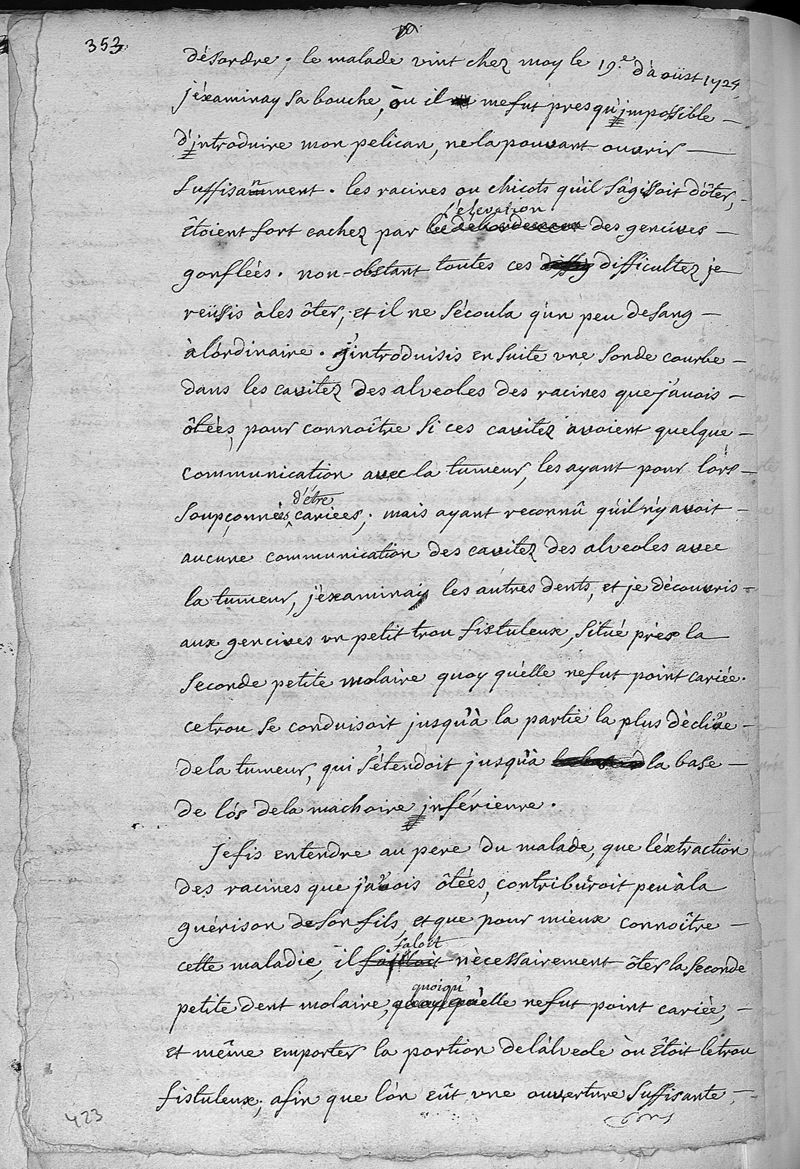 353
désordre. le malade vint chez moy le 19.e d'aoüst 1724
j'éxaminay sa bouche, où il me fut presqu'impossible
d'introduire mon pelican, ne la pouvant ouvrir
suffisanment. les racines ou chicots qu'il s'agissoit d'ôter,
l'élevation
étoient fort cachez par des gencives
gonflées. non-obstant toutes ces difficultez je
reüssis à les ôter, et il ne s'écoula qu'un peu de sang
à l'órdinaire. j'introduisis en suite une sonde courbe
dans les cavitez des alveoles des racines que j'avois
ôtées, pour connoître si ces cavitez avoient quelque
communication avec la tumeur, les ayant pour lórs
d'être
soupçonnées cariées; mais ayant reconnû qu'il n'y avoit
aucune communication des cavitez des alveoles avec
la tumeur, j'éxaminay les autres dents, et je découvris
aux gencives un petit trou fistuleux, situé près la
seconde petite molaire quoy qu'élle ne fut point cariée.
ce trou se conduisoit jusqu'à la partie la plus déclive
de la tumeur, qui s'étendoit jusqu'à la base
de l'ós de la machoire inférieure.
Je fis entendre au pere du malade, que l'éxtraction
des racines que j'avois ôtées, contriburoit peu à la
guérison de són fils, et que pour mieux connoître
faloit
cette maladie, il nécessairement ôter la seconde
quoiqu'
petite dent molaire, élle ne fut point cariée,
et même emporter la portion de l'álveole où étoit le trou
fistuleux; afin que l'ón eût une ouverture suffisante,
423